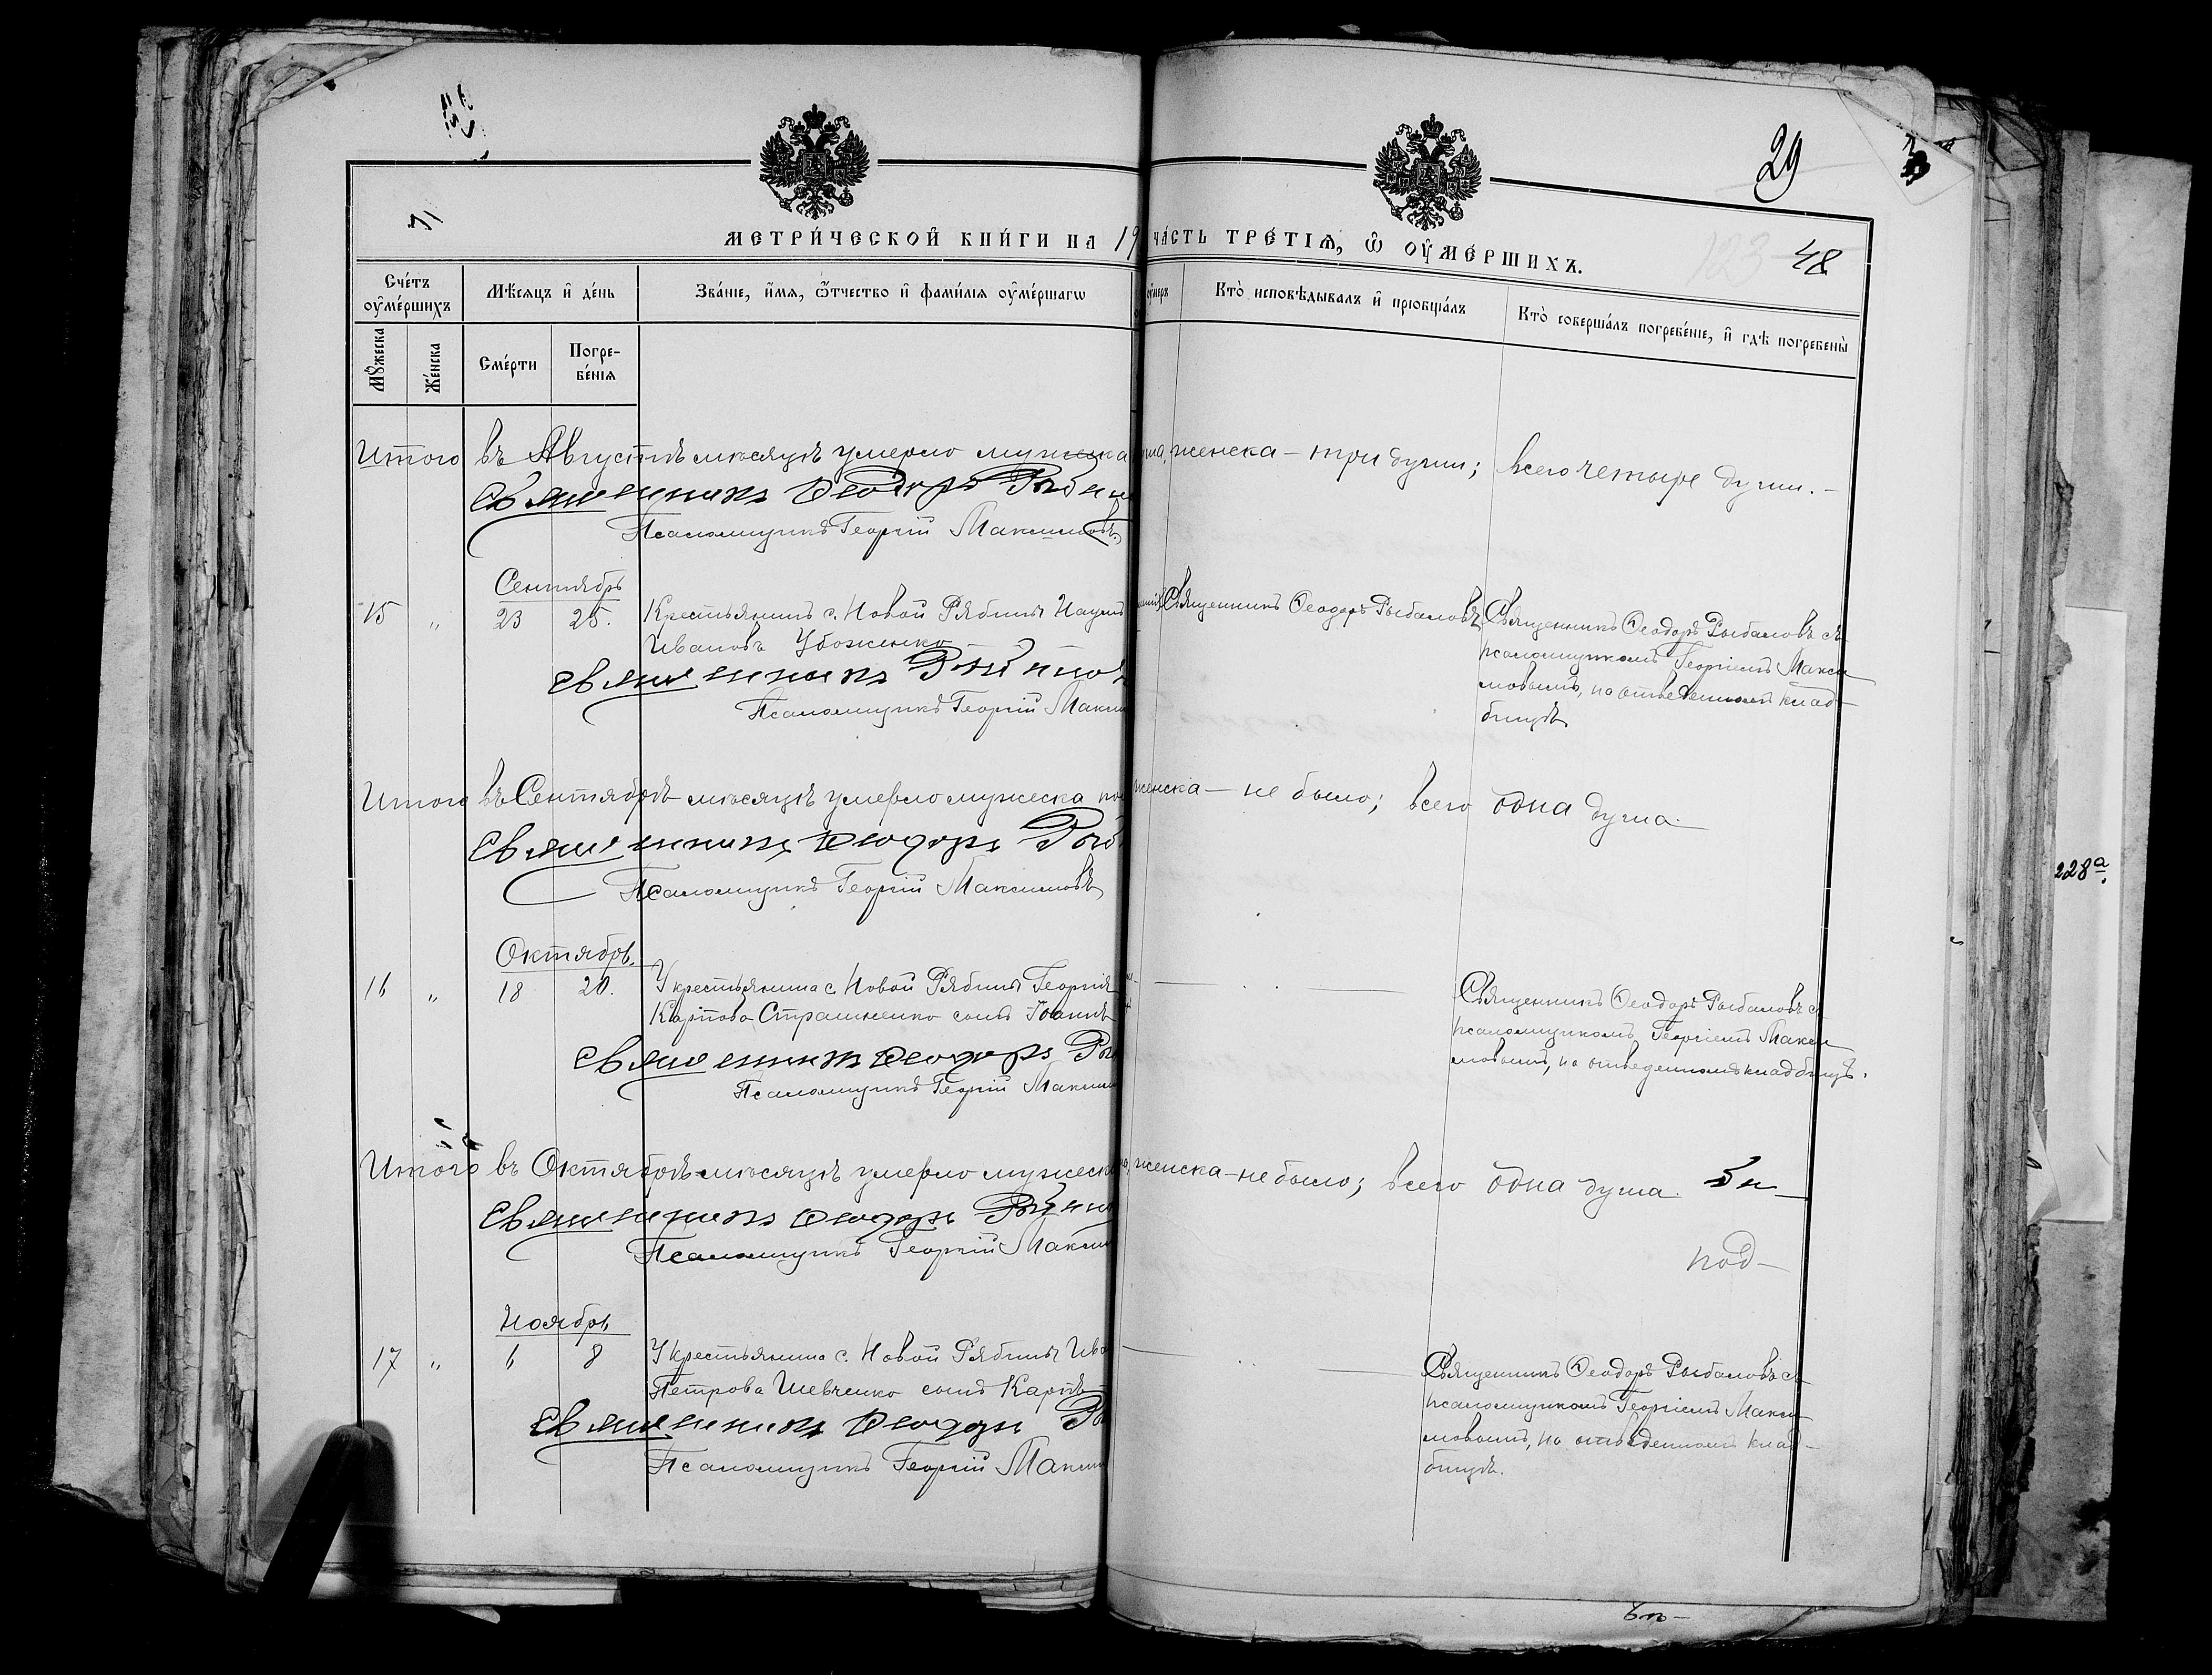 29
48
123
МЕТРИ́ЧЕСКОЙ КНИ́ГИ НА 19
ЧА́СТЬ ТРЕ́ТІѦ, Ѡ ОУ҆МЕ́РШИХЪ.
Сче́тъ оу҆ме́ршихъ
Мѣ́сѧцъ и҆ де́нь
Зва́нїе, и҆́мѧ, ѻ҆́тчество и҆ фами́лїѧ оу҆ме́ршагѡ
Кто̀ исповѣ́дывалъ и҆ прїобща́лъ
Кто̀ соверша́лъ погребе́нїе, и҆ гдѣ̀ погребены̀
Мꙋ́жеска
Же́нска
Сме́рти
Погребе́нїѧ
Итого въ Августѣ мѣсяцѣ умерло мужеска
женска – три души; всего четыре души. –
Священникъ Ѳеодоръ
Псаломщикъ Георгій Максимовъ
Сентябрь
15 „ 23 25. Крестьянинъ с. Новой Рябины Наумъ
Ивановъ Убоженко
Священникъ Ѳеодоръ Рыбаловъ
Священникъ Ѳеодоръ Рыбаловъ съ
псаломщикомъ Георгіемъ Макси
мовымъ, на отведенномъ клад-
бищѣ
Священникъ
Псаломщикъ Георгій
Итого въ Сентябрѣ мѣсяцѣ умерло мужеска
женска – не было; всего одна душа.
Священникъ Ѳеодоръ
Псаломщикъ Георгій Максимовъ
Октябрь
16 „ 18 20. У крестьянина с. Новой Рябины Георгія
Карпова Страшненко сынъ Іоаннъ
Священникъ Ѳеодоръ Рыбаловъ съ
псаломщикомъ Георгіемъ Макси
мовымъ, на отведенномъ кладбищѣ.
Священникъ Ѳеодоръ
Псаломщикъ Георгій
Итого въ Октябрѣ мѣсяцѣ умерло мужеска
женска – не было; всего одна душа.
Священникъ Ѳеодоръ
Псаломщикъ Георгій
под-
Ноябрь
17 „ 6 8 У крестьянина с. Новой Рябины
Петрова Шевченко сынъ Карпъ
Священникъ Ѳеодоръ Рыбаловъ съ
псаломщикомъ Георгіемъ Макси
мовымъ, на отведенномъ клад-
бищѣ.
Священникъ Ѳеодоръ
Псаломщикъ Георгій
228а.